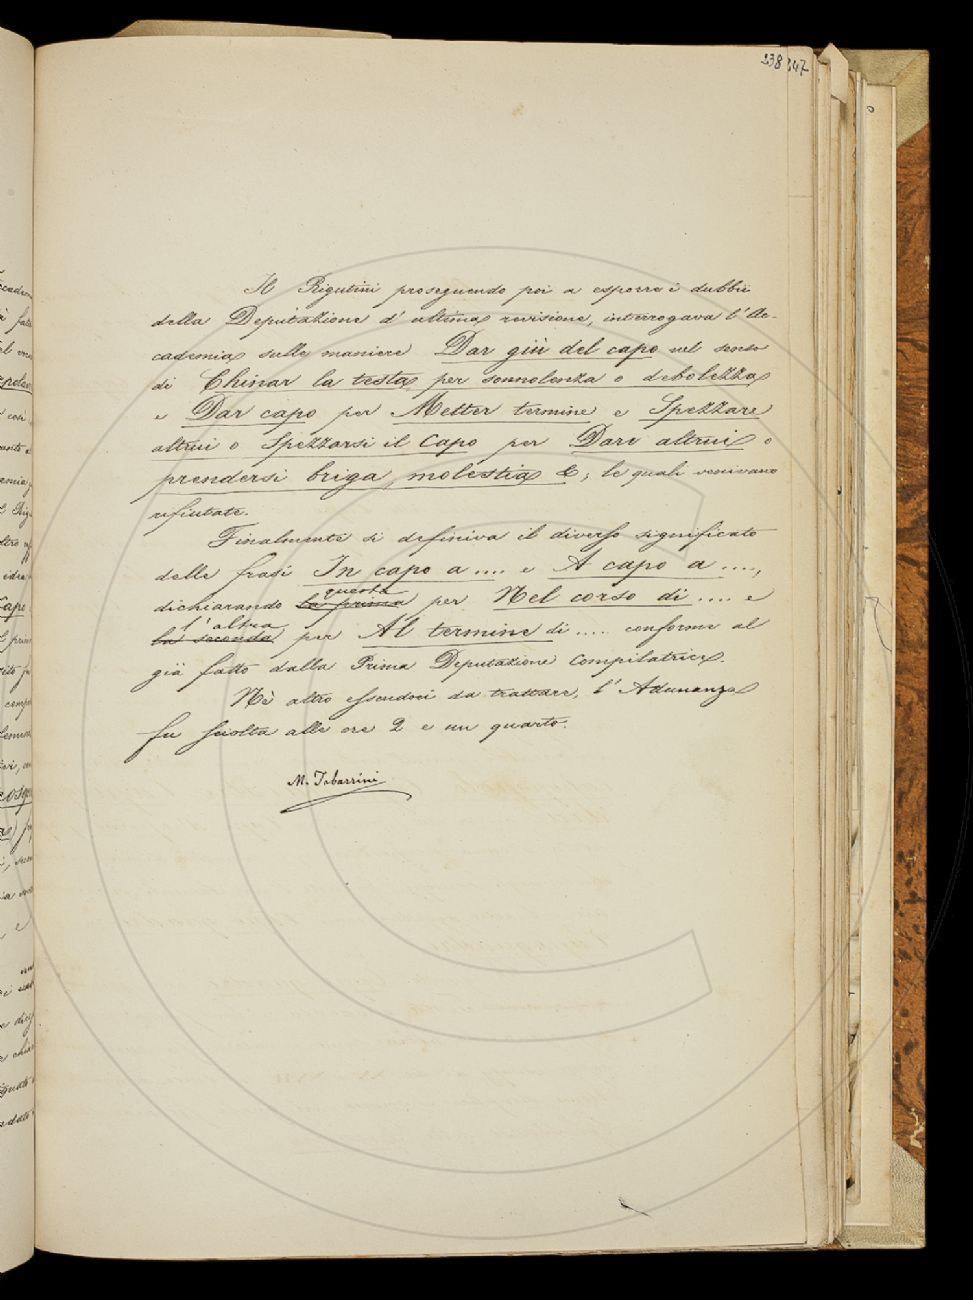 238 247
Il Rigutini proseguendo poi a esporre i dubbii
della Deputazione d'ultima revisione, interrogava l'Ac-
cademia sulle maniere Dar giù del capo nel senso
di Chinar la testa per sonnolenza o debolezza
e Dar capo per Metter termine e Spezzare
altrui o Spezzarsi il Capo per Dare altrui o
prendersi briga, molestia &; le quali venivano
rifiutate.
Finalmente si definiva il diverso significato
delle frasi In capo a .... e A capo a ....,
questa
dichiarando la prima per Nel corso di .... e
l'altra
la seconda per Al termine di ..... conforme al
già fatto dalla Prima Deputazione Compilatrice.
Nè altro essendoci da trattare, l'Adunanza
fu sciolta alle ore 2 e un quarto.
M. Tabarrini